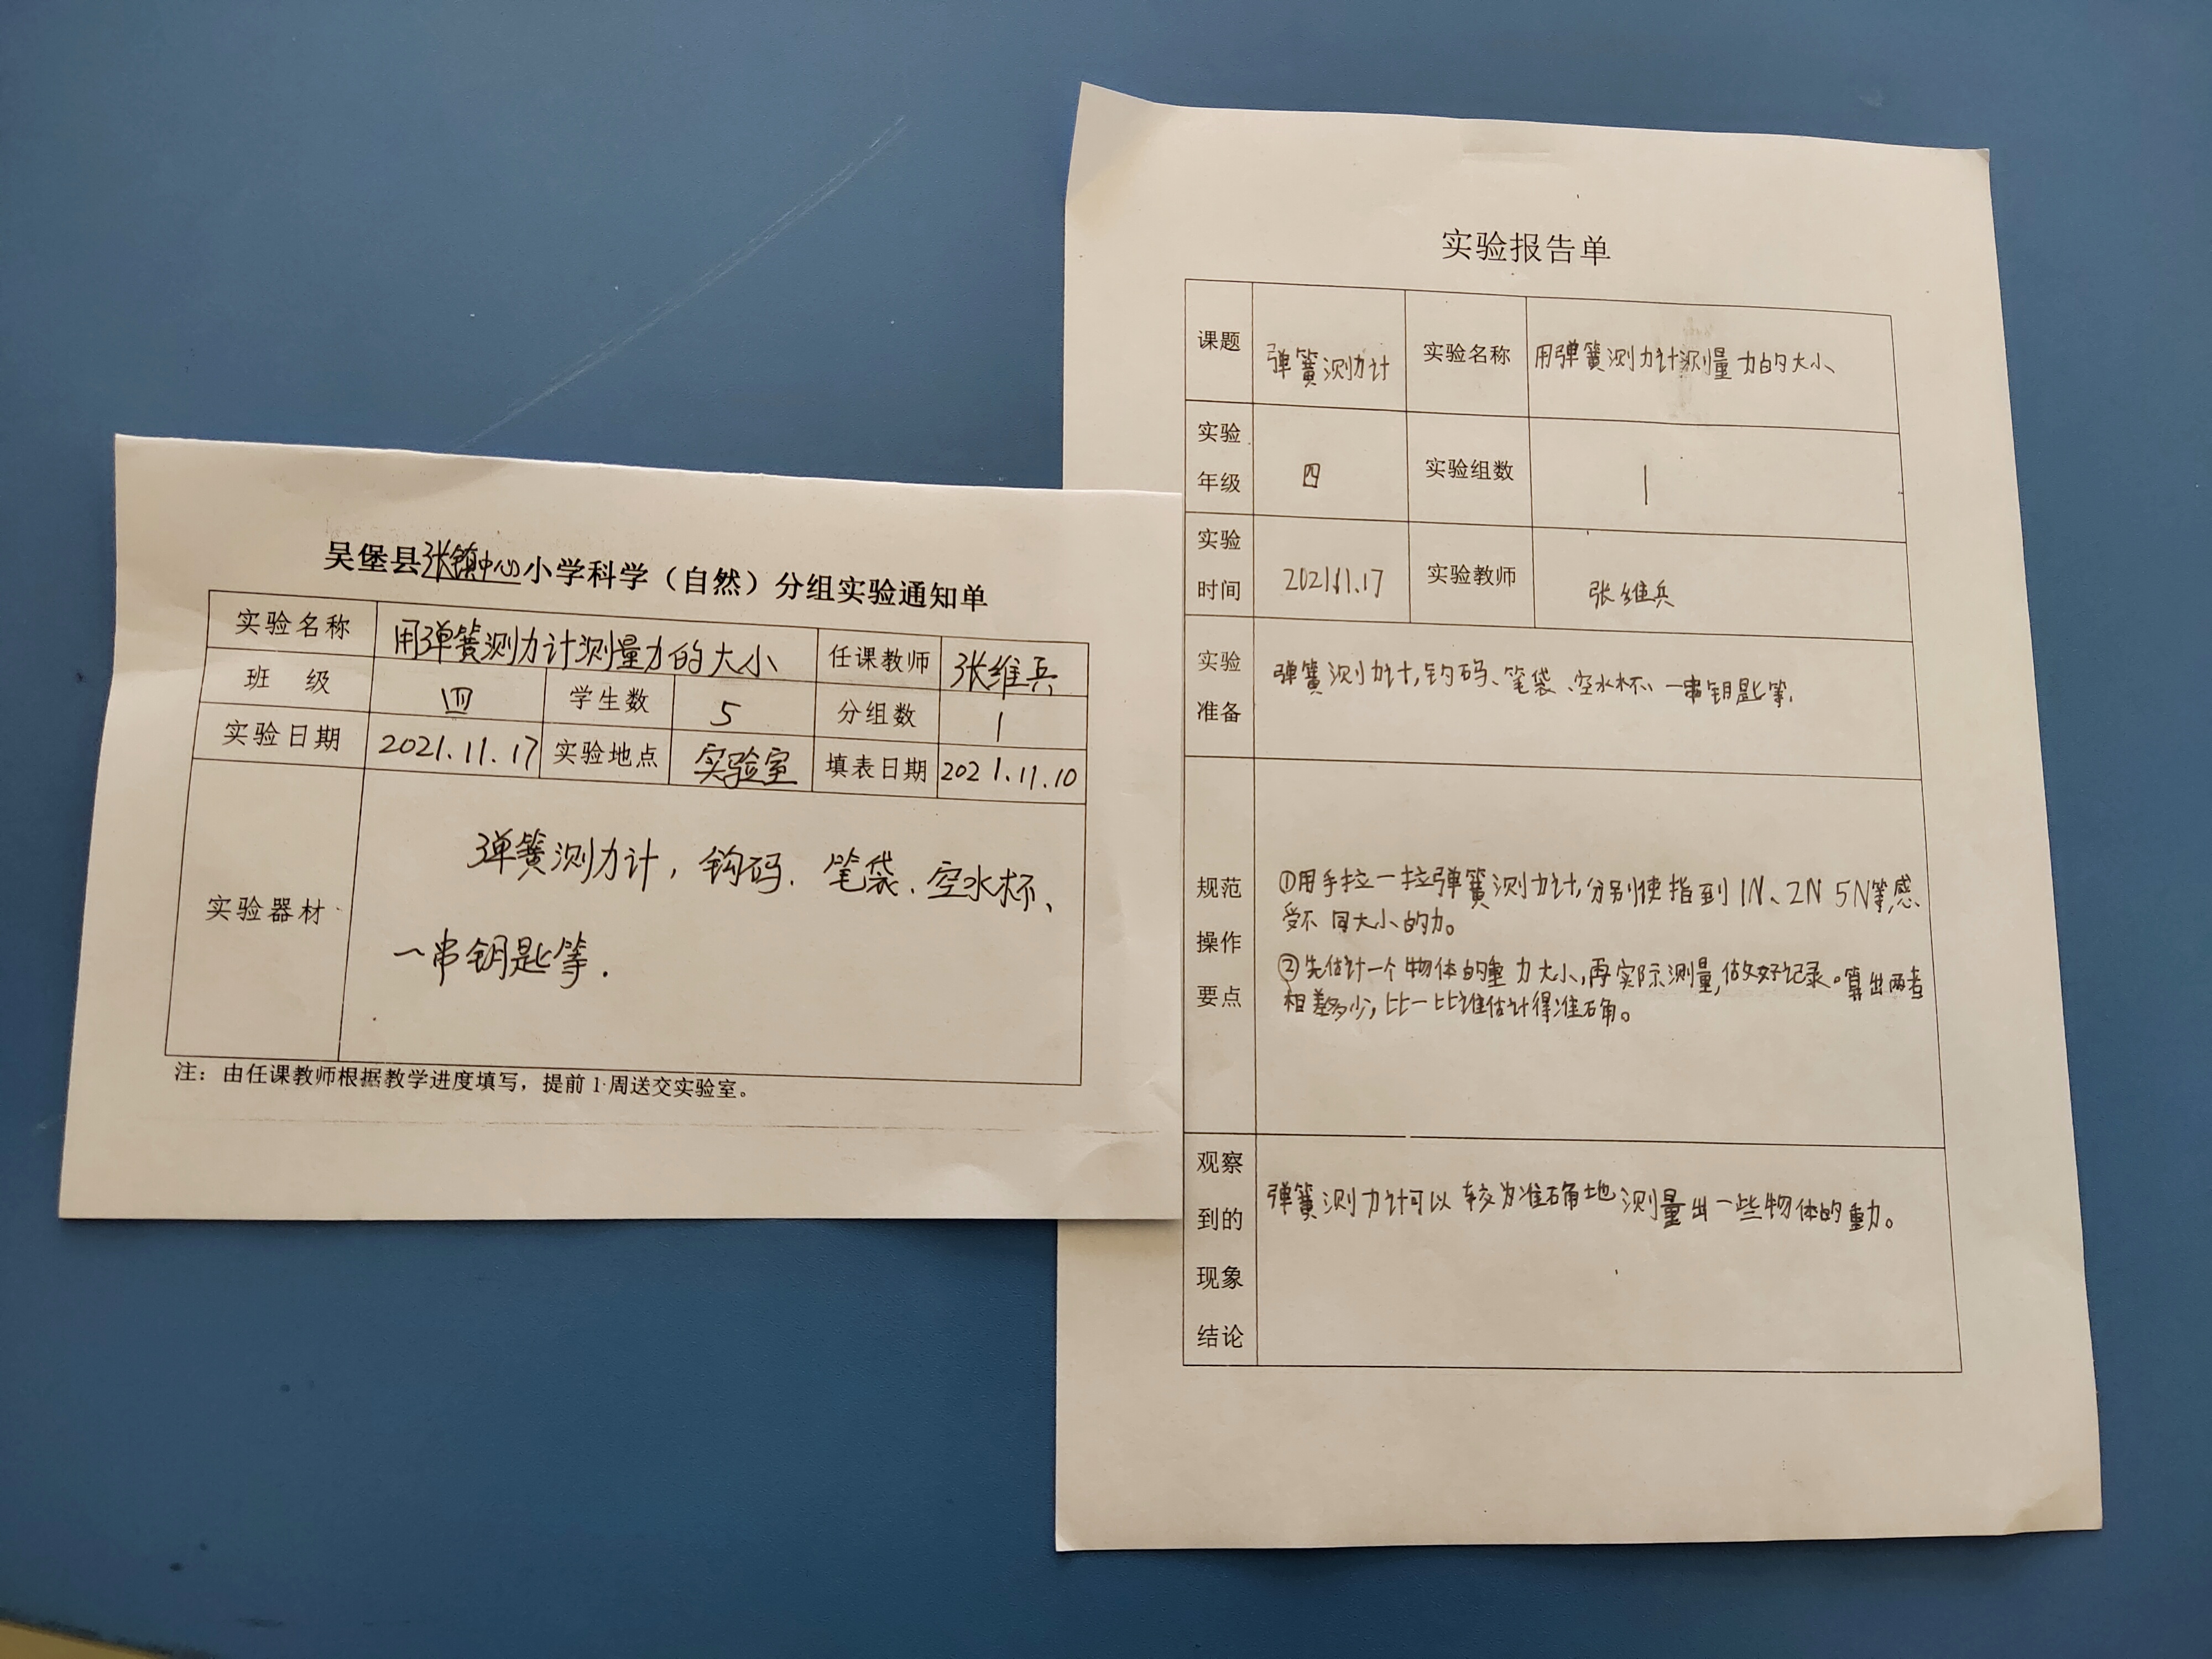 吴堡县张镇中心小学科学（自然）分组实验通知单
实验名称 用弹簧测力计测量力的大小 任课教师 张维兵
班 级 四 学生数 5 分组数 1
实验日期 2021.11.17 实验地点 实验室 填表日期 2021.11.10
实验器材
弹簧测力计，钩码、笔袋、空水杯、
一串钥匙等.
注：由任课教师根据教学进度填写，提前1周送交实验室。
实验报告单
课题 弹簧测力计 实验名称 用弹簧测力计测量力的大小
实验年级 四 实验组数 1
实验时间 2021.11.17 实验教师 张维兵
实验准备 弹簧测力计,钩码、笔袋、空水杯、一串钥匙等.
规范操作要点
①用手拉一拉弹簧测力计,分别使指到1N、2N 5N等,感
受不同大小的力。
②先估计一个物体的重力大小,再实际测量,做好记录。算出两者
相差多少,比一比谁估计得准确。
观察到的现象结论
弹簧测力计可以较为准确地测量出一些物体的重力。